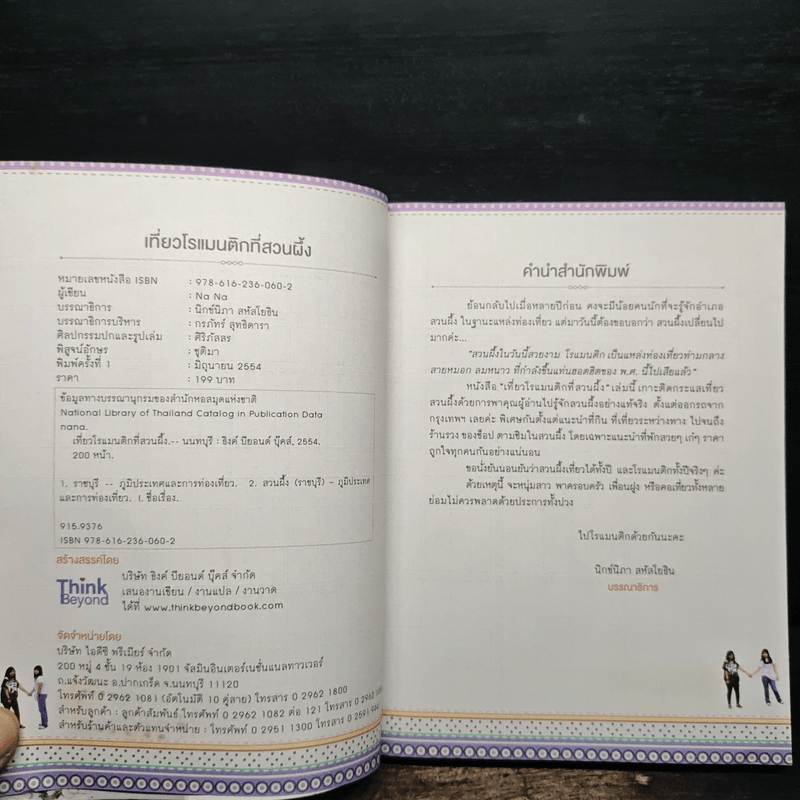 เที่ยวโรแมนติกที่สวนผึ้ง
หมายเลขหนังสือ ISBN : 978-616-236-060-2
ผู้เขียน : Na Na
บรรณาธิการ : นิกช์นิภา สหัสโยธิน
บรรณาธิการบริหาร : กรภัทร์ สุทธิดารา
ศิลปกรรมปกและรูปเล่ม : ศิริภัสสร
พิสูจน์อักษร : ชุติมา
พิมพ์ครั้งที่ 1 : มิถุนายน 2554
ราคา : 199 บาท
ข้อมูลทางบรรณานุกรมของสำนักหอสมุดแห่งชาติ
National Library of Thailand Catalog in Publication Data
nana.
เที่ยวโรแมนติกที่สวนผึ้ง.-- นนทบุรี : ธิงค์ บียอนด์ บุ๊คส์, 2554.
200 หน้า.
1. ราชบุรี -- ภูมิประเทศและการท่องเที่ยว. 2. สวนผึ้ง (ราชบุรี) - ภูมิประเทศ
และการท่องเที่ยว. I. ชื่อเรื่อง.
915.9376
ISBN 978-616-236-060-2
สร้างสรรค์โดย
Think
Beyond
บริษัท ธิงค์ บียอนด์ บุ๊คส์ จำกัด
เสนองานเขียน / งานแปล / งานวาด
ได้ที่ www.thinkbeyondbook.com
จัดจำหน่ายโดย
บริษัท ไอดีซี พรีเมียร์ จำกัด
200 หมู่ 4 ชั้น 19 ห้อง 1901 จัสมินอินเตอร์เนชั่นแนลทาวเวอร์
ถ.แจ้งวัฒนะ อ.ปากเกร็ด จ.นนทบุรี 11120
โทรศัพท์ 0 2962 1081 (อัตโนมัติ 10 คู่สาย) โทรสาร 0 2962 1800
สำหรับลูกค้า : ลูกค้าสัมพันธ์ โทรศัพท์ 0 2962 1082 ต่อ 121 โทรสาร 0 2962
สำหรับร้านค้าและตัวแทนจำหน่าย : โทรศัพท์ 0 2951 1300 โทรสาร 0 2591
คำนำสำนักพิมพ์
ย้อนกลับไปเมื่อหลายปีก่อน คงจะมีน้อยคนนักที่จะรู้จักอำเภอ
สวนผึ้ง ในฐานะแหล่งท่องเที่ยว แต่มาวันนี้ต้องขอบอกว่า สวนผึ้งเปลี่ยนไป
มากค่ะ...
"สวนผึ้งในวันนี้สวยงาม โรแมนติก เป็นแหล่งท่องเที่ยวท่ามกลาง
สายหมอก ลมหนาว ที่กำลังขึ้นแท่นฮอตฮิตของ พ.ศ. นี้ไปเสียแล้ว"
หนังสือ "เที่ยวโรแมนติกที่สวนผึ้ง" เล่มนี้ เกาะติดกระแสเที่ยว
สวนผึ้งด้วยการพาคุณผู้อ่านไปรู้จักสวนผึ้งอย่างแท้จริง ตั้งแต่ออกรถจาก
กรุงเทพฯ เลยค่ะ พิเศษกันตั้งแต่แนะนำที่กิน ที่เที่ยวระหว่างทาง ไปจนถึง
ร้านรวง ของช็อป ตามชิมในสวนผึ้ง โดยเฉพาะแนะนำที่พักสวยๆ เก๋ๆ ราคา
ถูกใจทุกคนกันอย่างแน่นอน
ขอนั่งยันนอนยันว่าสวนผึ้งเที่ยวได้ทั้งปี และโรแมนติกทั้งปีจริงๆ ค่ะ
ด้วยเหตุนี้ จะหนุ่มสาว พาครอบครัว เพื่อนฝูง หรือคอเที่ยวทั้งหลาย
ย่อมไม่ควรพลาดด้วยประการทั้งปวง
ไปโรแมนติกด้วยกันนะคะ
นิกช์นิภา สหัสโยธิน
บรรณาธิการ